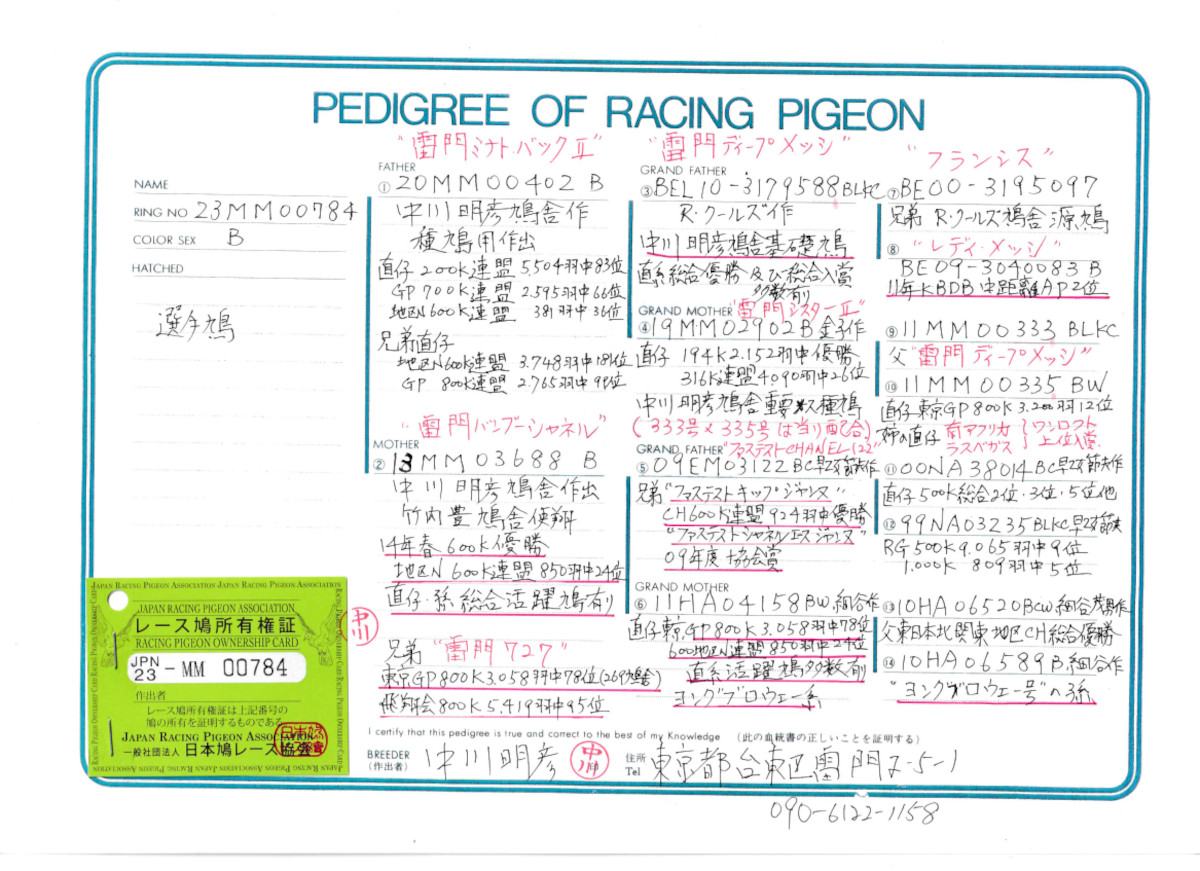 PEDIGREE OF RACING PIGEON
NAME
RING NO 23MM00784
COLOR SEX B
HATCHED
選手鳩
"雷門ミナト・バックⅡ"
FATHER
① 20MM00402 B
中川明彦鳩舎作
種鳩用作出
直仔 200K連盟 5,504羽中83位
GP 700K連盟 2.595羽中66位
地区N600K連盟 381羽中36位
兄弟直仔
地区N600K連盟 3.748羽中181位
GP 800K連盟 2.765羽中99位
"雷門バンブーシャネル"
MOTHER
② 13MM03688 B
中川明彦鳩舎作出
竹内豊鳩舎使翔
14年春600K優勝
地区N 600K連盟850羽中24位
直仔・孫総合活躍鳩有り
中川
兄弟 "雷門727"
東京GP800K3.058羽中78位
飛翔会800K5.419羽中95位
"雷門ディープメッシ"
GRAND FATHER
③ BEL10-3179588BLKC
R・クールズ作
中川明彦鳩舎基礎鳩
直系総合優勝及び総合入賞
多数有り
"雷門シスターⅡ"
GRAND MOTHER
④ 19MM02902B金子作
直仔 194K2.152羽中優勝
316K連盟4,090羽中26位
中川明彦鳩舎重要種鳩
(333号×335号は当り配合)
"ファステストCHANEL122"
GRAND FATHER
⑤ 09EM03122BC早苅節夫作
兄弟"ファステストキップジャンヌ"
CH600K連盟924羽中優勝
"ファステストシャネルエスジャンヌ"
09年度協会賞
GRAND MOTHER
⑥ 11HA04158BW細谷作
直仔東京GP800K3.058羽中78位
600地区N連盟850羽中24位
直系活躍鳩多数有
ヨングブロウェー系
"フランシス"
⑦ BE00-3195097
兄弟 R・クールズ鳩舎源鳩
⑧ "レディ・メッシ"
BE09-3040083 B
11年KBDB中距離AP2位
⑨ 11MM00333 BLKC
父"雷門ディープメッシ"
⑩ 11MM00335 BW
直仔東京GP800K3.200羽12位
姉の直仔 南アフリカ ラスベガス } ワンロフト上位入賞
⑪ 00NA38014BC早苅節夫作
直仔500K総合2位・3位・5位他
⑫ 99NA03235BLKC早苅節夫
RG500K9.065羽中9位
1.000K 809羽中5位
⑬ 10HA06520BCW細谷茂男作
父東日本北関東地区CH総合優勝
⑭ 10HA06589B細谷作
"ヨングブロウェー号"の孫
I certify that this pedigree is true and correct to the best of my Knowledge (此の血統書の正しいことを証明する)
BREEDER
(作出者)
中川明彦
中川
住所
Tel
東京都台東区雷門2-5-1
090-6122-1158
JAPAN RACING PIGEON ASSOCIATION JAPAN RACING PIGEON ASSOCIATION
JAPAN RACING PIGEON ASSOCIATION
レース鳩所有権証
RACING PIGEON OWNERSHIP CARD
JPN
23 - MM 00784
作出者
レース鳩所有権証は上記番号の
鳩の所有を証明するものである
JAPAN RACING PIGEON ASSOCIATION
一般社団法人 日本鳩レース協会